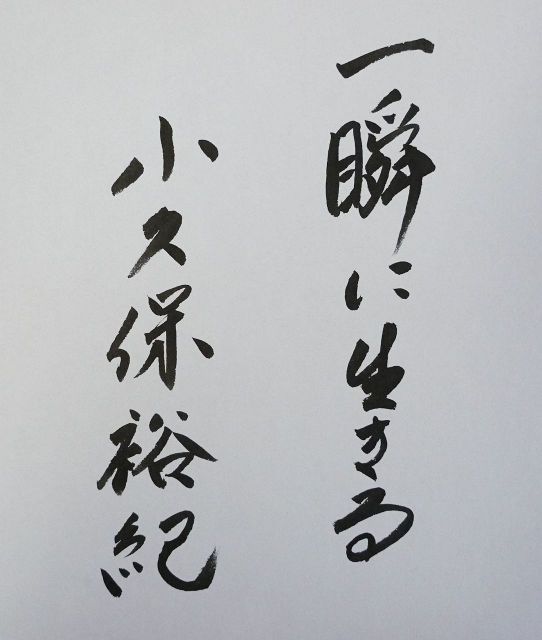 一瞬に生きる
小久保裕紀